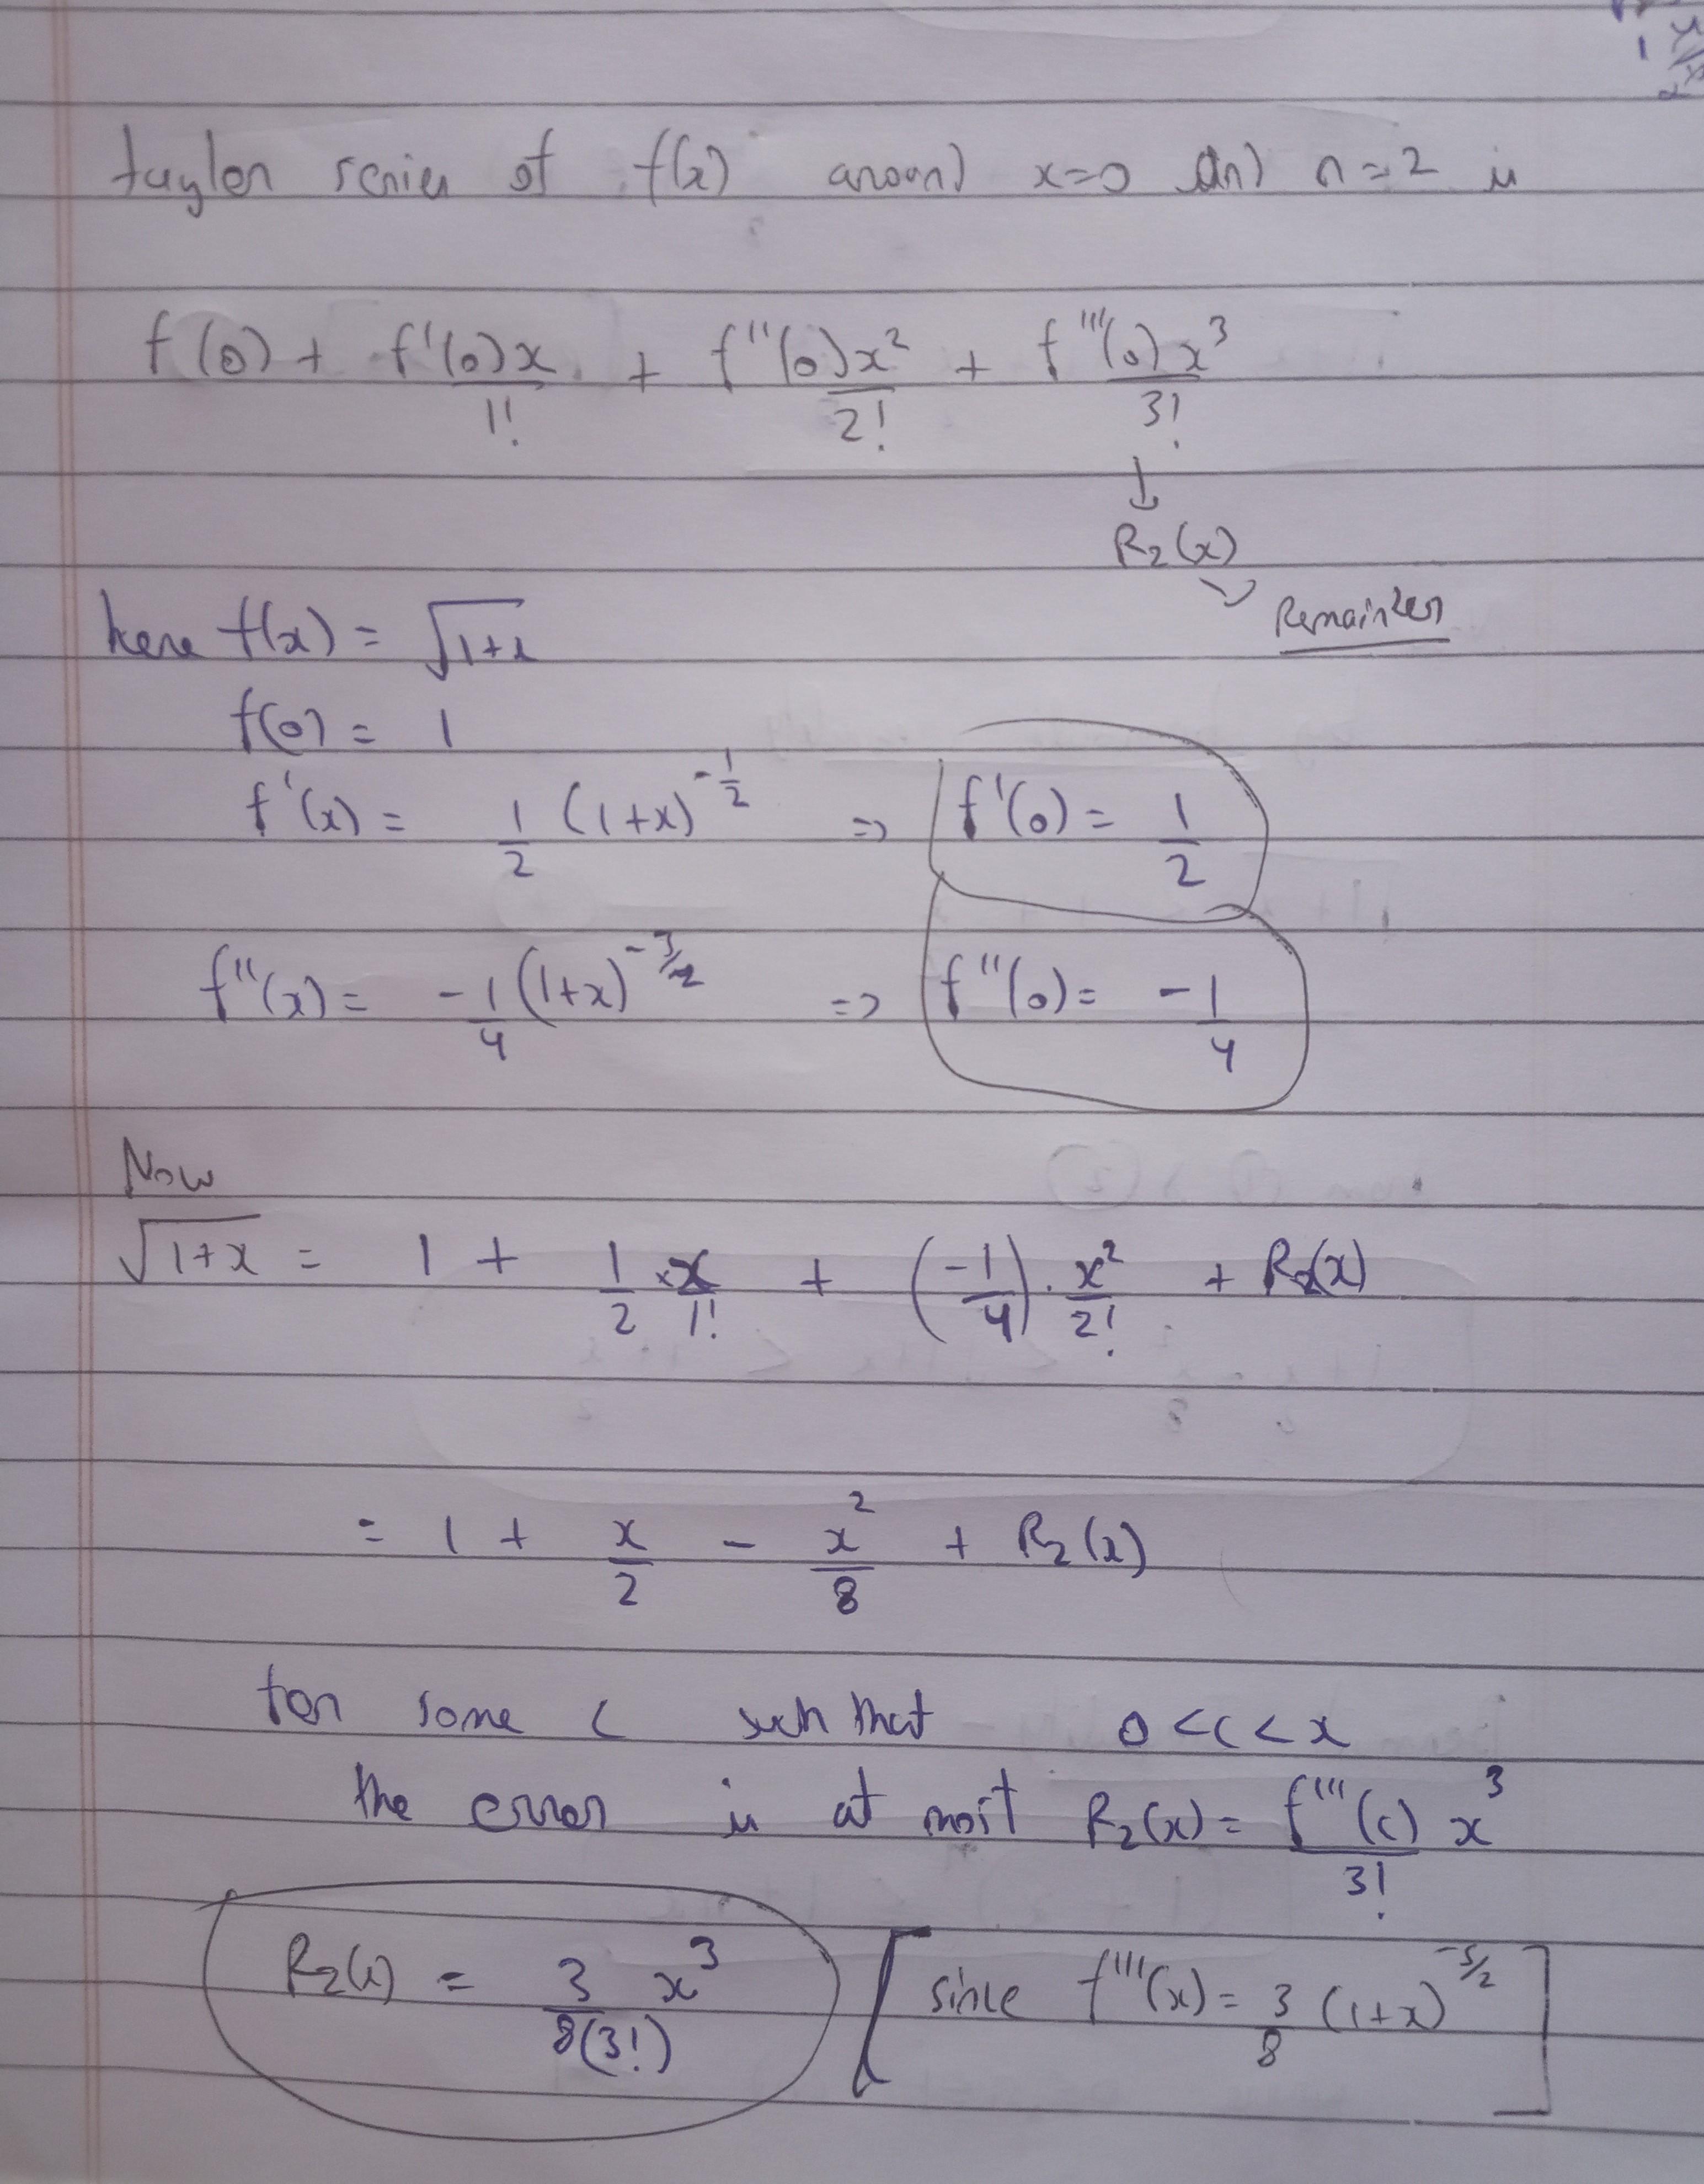 taylor series of f(x) around x=0 and n=2 is
f(0) + f'(0)x/1! + f''(0)x²/2! + f'''(0)x³/3!
↓
R₂(x)
Remainder
here f(x) = √1+x
f(0) = 1
f'(x) = 1/2 (1+x)^-1/2 => f'(0) = 1/2
f''(x) = -1/4 (1+x)^-3/2 => f''(0) = -1/4
Now
√1+x = 1 + 1/2 × x/1! + (-1/4) · x²/2! + R₂(x)
= 1 + x/2 - x²/8 + R₂(x)
for some c such that 0<c<x
the error is at most R₂(x) = f'''(c)/3! x³
R₂(x) = 3/8(3!) x³ [since f'''(x) = 3/8 (1+x)^-5/2]